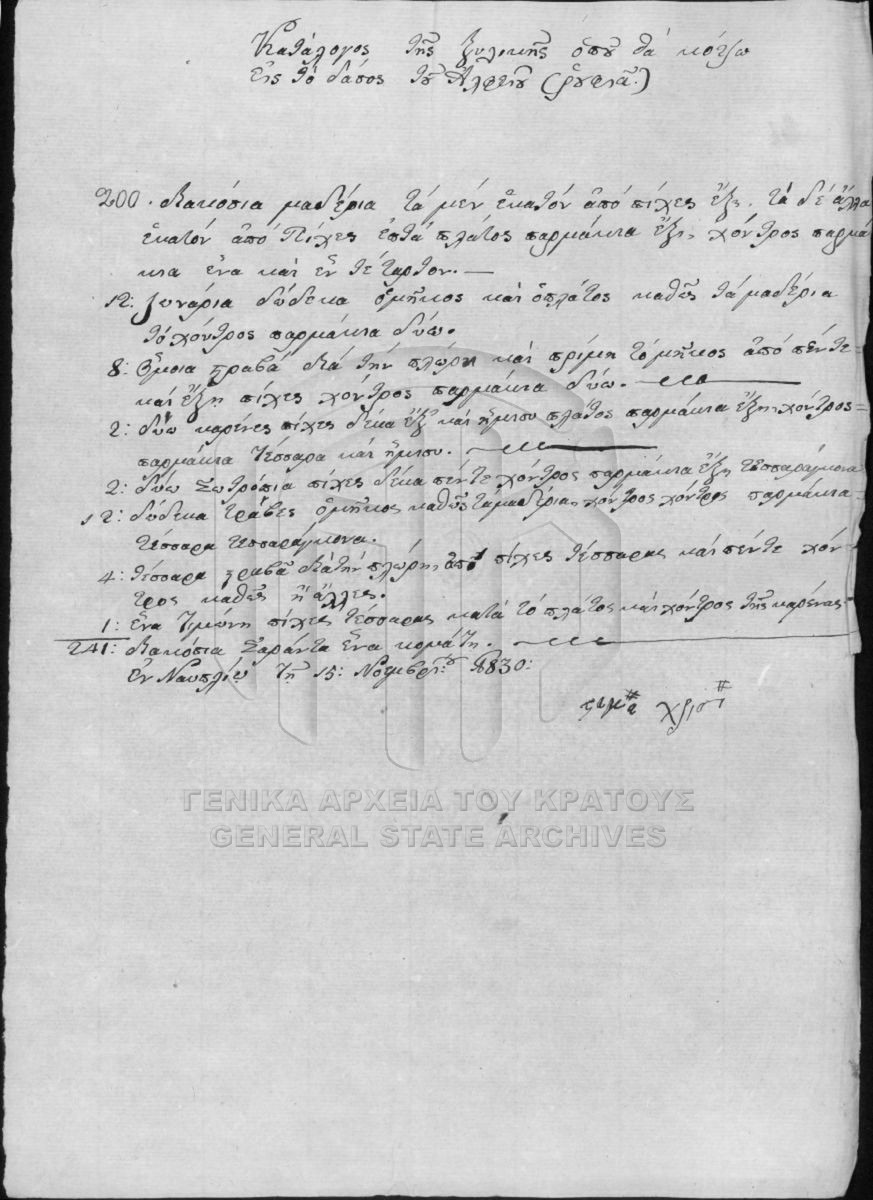 Κατάλογος τῆς ξυλικῆς ὁποῦ θὰ κόψω
εἰς τὸ δάσος τοῦ Ἀλφειοῦ (ῥουφιᾶ.)
200. διακόσια μαδέρια τὰ μέν ἑκατόν ἀπό πίχες ἕξη, τὰ δέ ἄλλα
ἑκατόν ἀπό πίχες ἑπτά πλάτος παρμάκια ἕξη, χόντρος παρμά
κια ἕνα καί ἕν τέταρτον.—
12: ζωνάρια δώδεκα ὁμῆκος καί ὁπλάτος καθῶς τὰ μαδέρια
τὸ χόντρος παρμάκια δύω.
8: ὅμοια στραβά διά τήν πλώρη καί πρίμη τὸ μῆκος ἀπό πέντε
καί ἕξη πίχες χόντρος παρμάκια δύω.
2: δύω καρένες πίχες δέκα ἕξ καί ἥμισυ πλάτος παρμάκια ἕξη, χόντρος
παρμάκια τέσσαρα καί ἥμισυ.
2: δύω σωτρόπια πίχες δέκα πέντε χόντρος παρμάκια ἕξη τεσσαράγωνα
12: δώδεκα τράβες ὁμῆκος καθῶς τὰ μαδέρια, χόντρος χόντρος παρμάκια
τέσσαρα τεσσαράγωνα.
4: τέσσαρα στραβά διά τήν πλώρη, ἀπό πίχες τέσσαρας καί πέντε χόν-
τρος καθῶς ἡ ἄλλες.
1: ἕνα τιμώνη πίχες τέσσαρας κατά τό πλάτος καί χόντρος τῆς καρένας
241: διακόσια σαράντα ἕνα κομάτη.
ἐν Ναυπλίῳ τῇ 15: Νοεμβρίου 1830:
ΓΕΝΙΚΑ ΑΡΧΕΙΑ ΤΟΥ ΚΡΑΤΟΥΣ
GENERAL STATE ARCHIVES